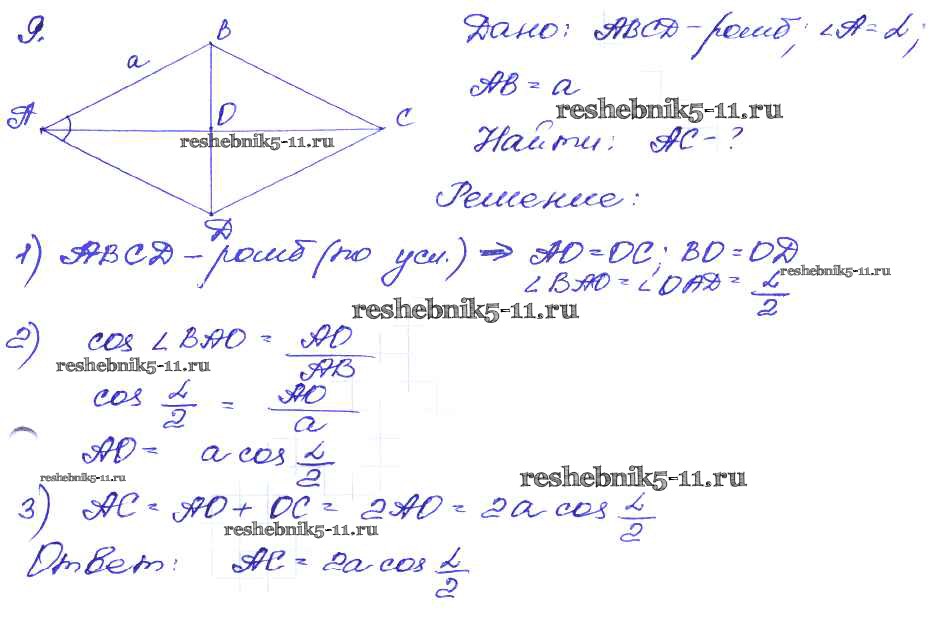 9.
B
a
A
O
C
reshebnik5-11.ru
D
Дано: ABCD - ромб; ∠A = α;
AB = a
reshebnik5-11.ru
Найти: AC - ?
Решение:
1) ABCD - ромб (по усл.) ⇒ AO = OC; BO = OD
∠BAO = ∠OAD = α/2
reshebnik5-11.ru
reshebnik5-11.ru
2) cos ∠BAO = AO/AB
reshebnik5-11.ru
cos α/2 = AO/a
AO = a cos α/2
reshebnik5-11.ru
reshebnik5-11.ru
3) AC = AO + OC = 2AO = 2a cos α/2
reshebnik5-11.ru
Ответ: AC = 2a cos α/2